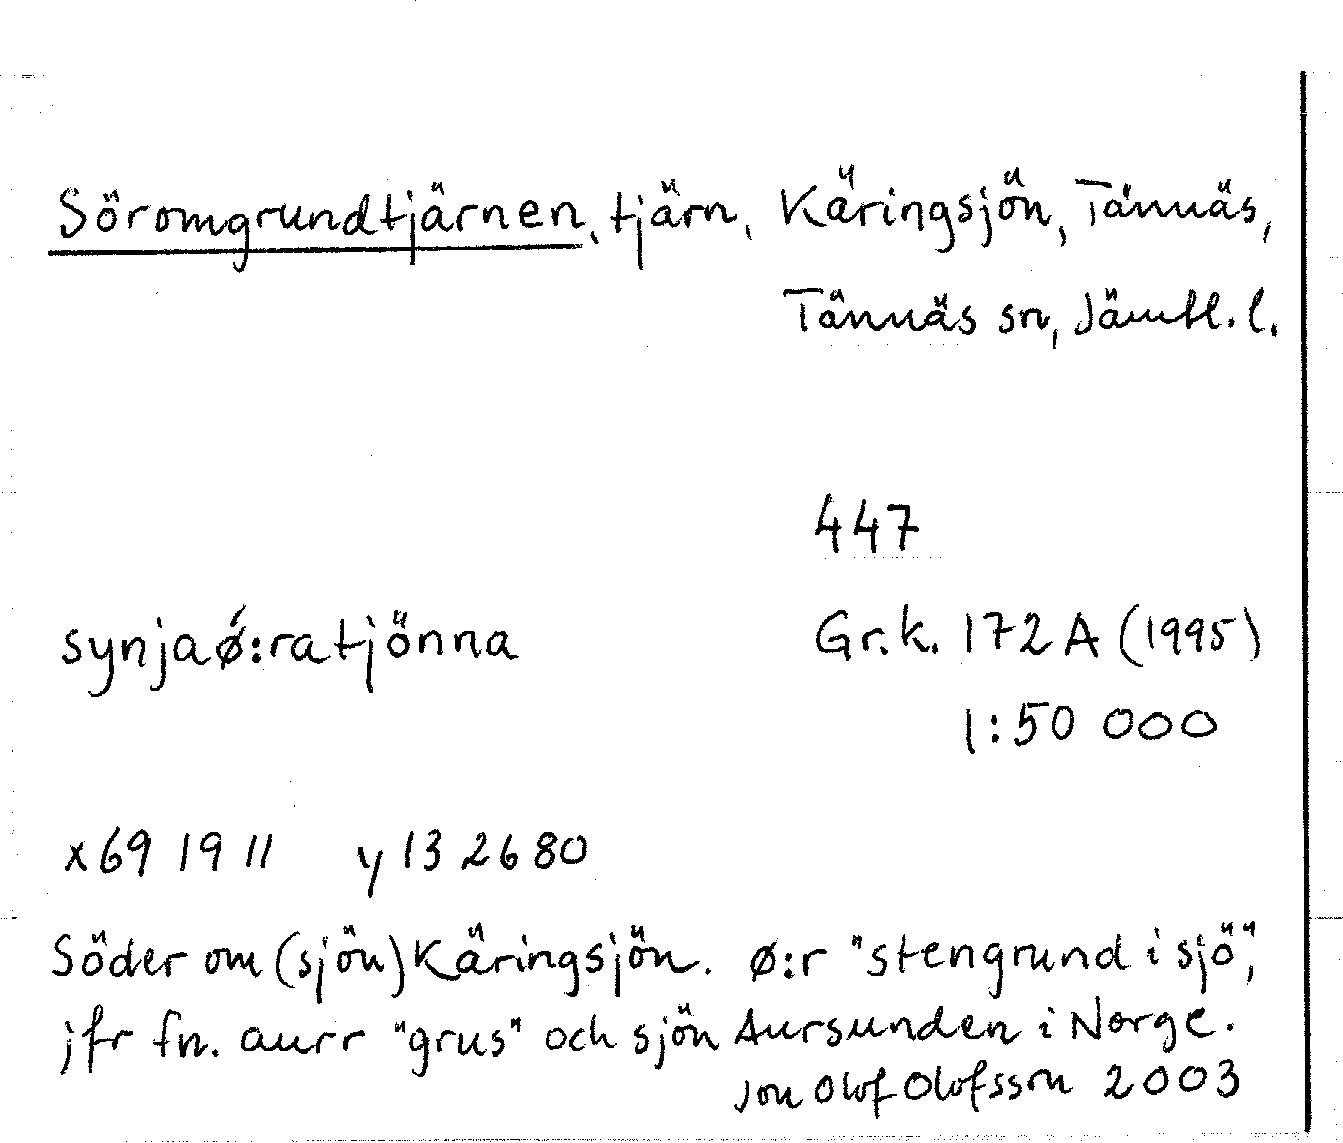 Söromgrundtjärnen, tjärn, Käringsjön, Tännäs,
Tännäs sn, Jämtl. l.
447
synjaǿ:ratjönna Gr.k. 172A (1995)
1:50 000
x 69 19 11 y 13 26 80
Söder om (sjön) Käringsjön. ø:r "stengrund i sjö",
jfr fn. aurr "grus" och sjön Aursunden i Norge.
Jon Olof Olofsson 2003